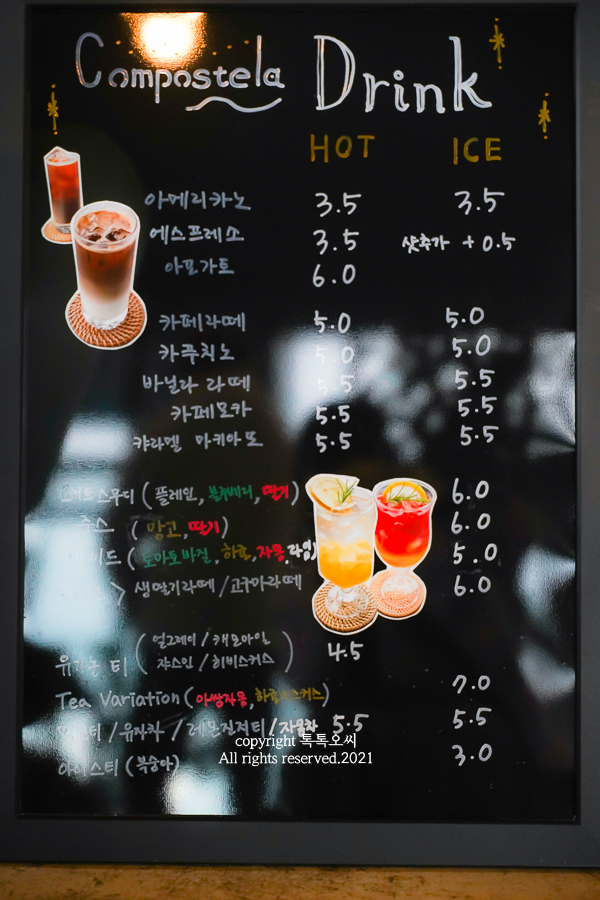 Compostela Drink
HOT ICE
아메리카노 3.5 3.5
에스프레소 3.5 샷추가 +0.5
아포가토 6.0
카페라떼 5.0 5.0
카푸치노 5.0 5.0
바닐라 라떼 5.5 5.5
카페모카 5.5 5.5
캬라멜 마키아또 5.5 5.5
(플레인, 블루베리, 딸기) 6.0
쥬스 (망고, 딸기) 6.0
(토마토바질, 하효, 자몽, 라임) 5.0
생딸기라떼 / 고구마라떼 6.0
(얼그레이 / 캐모마일
유기농 티 쟈스민 / 히비스커스) 4.5
Tea Variation (아쌈자몽, 하효히비스커스) 7.0
/ 유자차 / 레몬진저티 / 자몽차 5.5 5.5
아이스티 (복숭아) 3.0
copyright 톡톡오씨
All rights reserved.2021